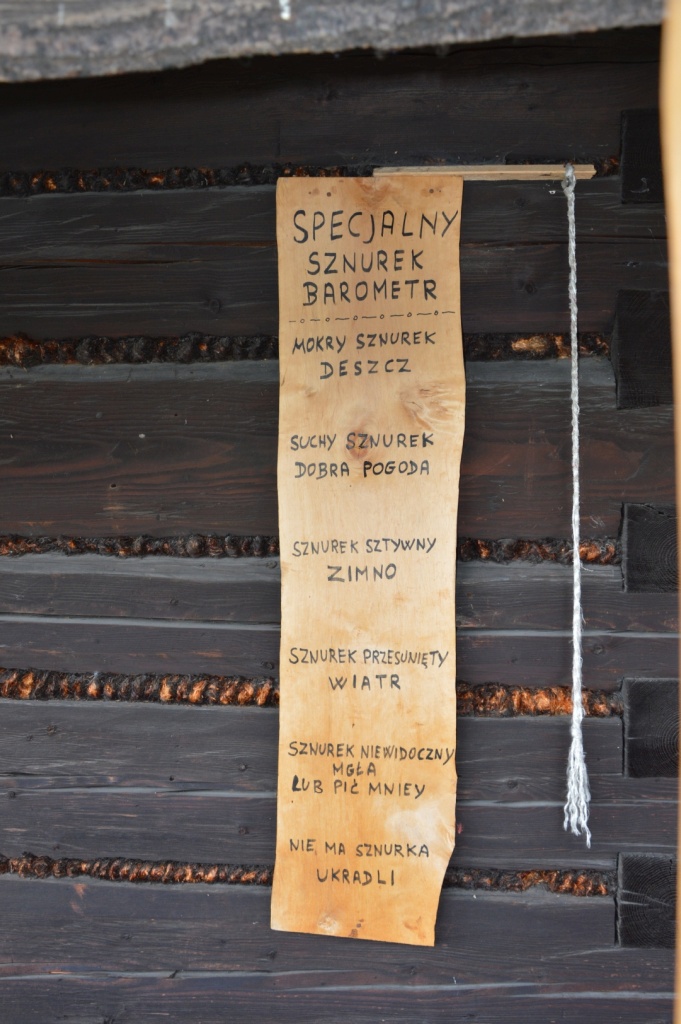 SPECJALNY
SZNUREK
BAROMETR
MOKRY SZNUREK
DESZCZ
SUCHY SZNUREK
DOBRA POGODA
SZNUREK SZTYWNY
ZIMNO
SZNUREK PRZESUNIĘTY
WIATR
SZNUREK NIEWIDOCZNY
MGŁA
LUB PIĆ MNIEY
NIE MA SZNURKA
UKRADLI